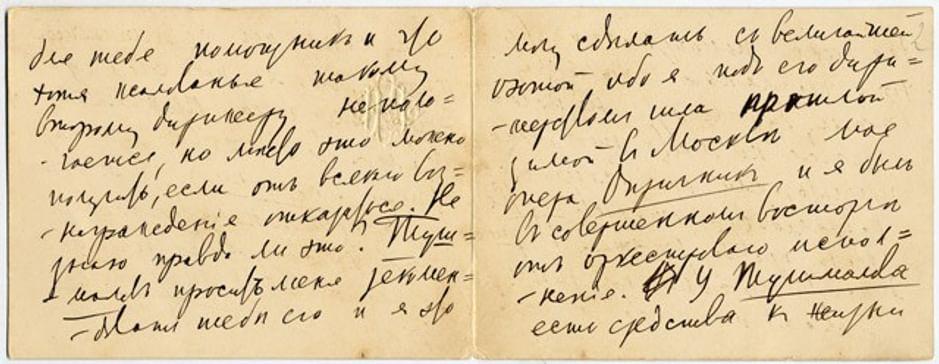 для тебе помощникъ и что
хотя жалованье такому
второму дирижеру не пола-
-гается, но место это можно
получить, если отъ всякаго воз-
-награжденiе отказаться. Не
знаю правда ли это. Тути-
-маловъ проситъ меня рекомен-
-довать тебѣ его и я это
могу сделать съ величайшей
охотой ибо я подъ его дири-
-жерствомъ шла прошлой
зимой въ Москвѣ моя
опера Опричникъ и я былъ
въ совершенномъ восторгѣ
отъ оркестроваго испол-
-ненiя. У Тутималова
есть средства к жизни